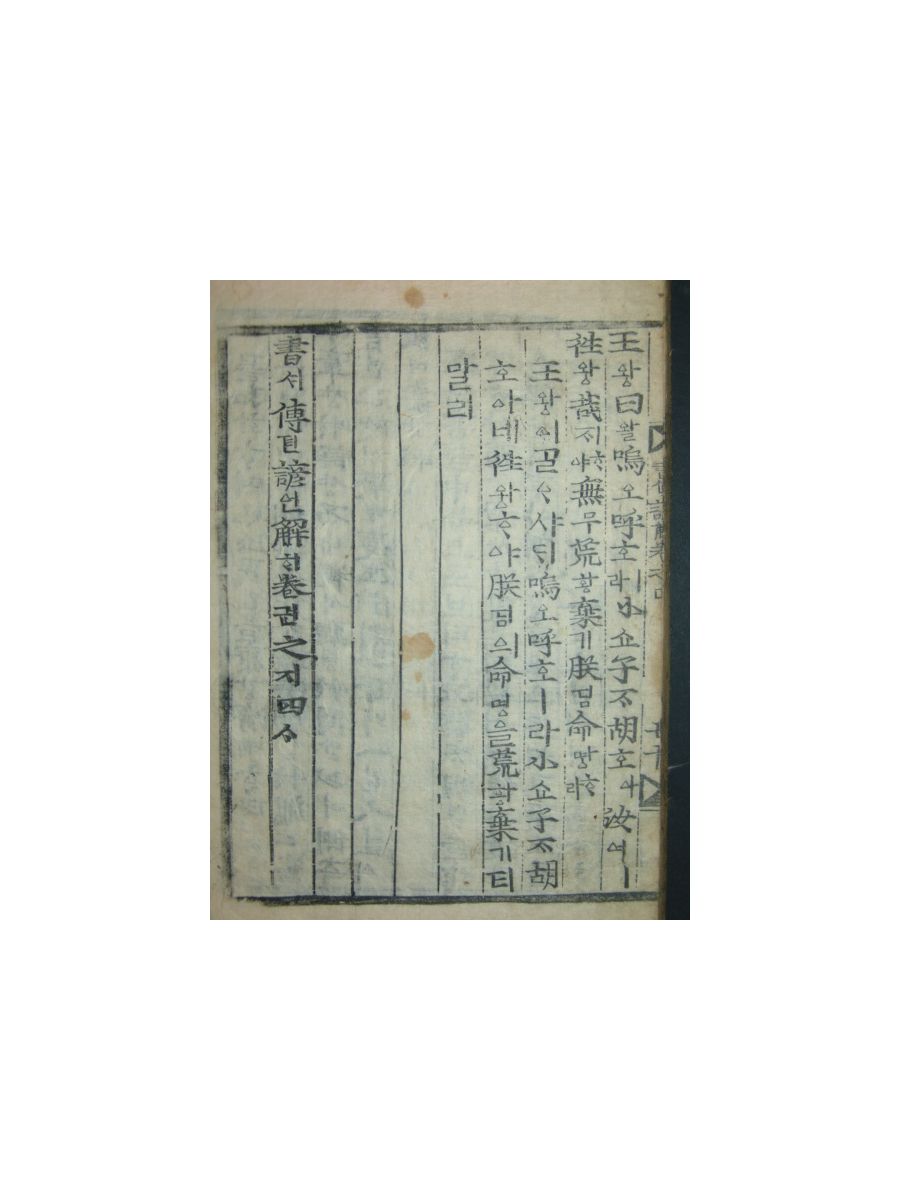 王왕曰왈嗚오呼호ㅣ라小쇼子ᄌᆞ胡호아汝여ㅣ
徃왕哉ᄌᆡᄒᆞ야無무荒황棄기朕딤命명ᄒᆞ라
王왕이ᄀᆞᆯᄋᆞ샤ᄃᆡ嗚오呼호ㅣ라小쇼子ᄌᆞ胡
호아네徃왕ᄒᆞ야朕딤의命명을荒황棄기티
말라
書셔傳뎐諺언解ᄒᆡ卷권之지四ᄉᆞ